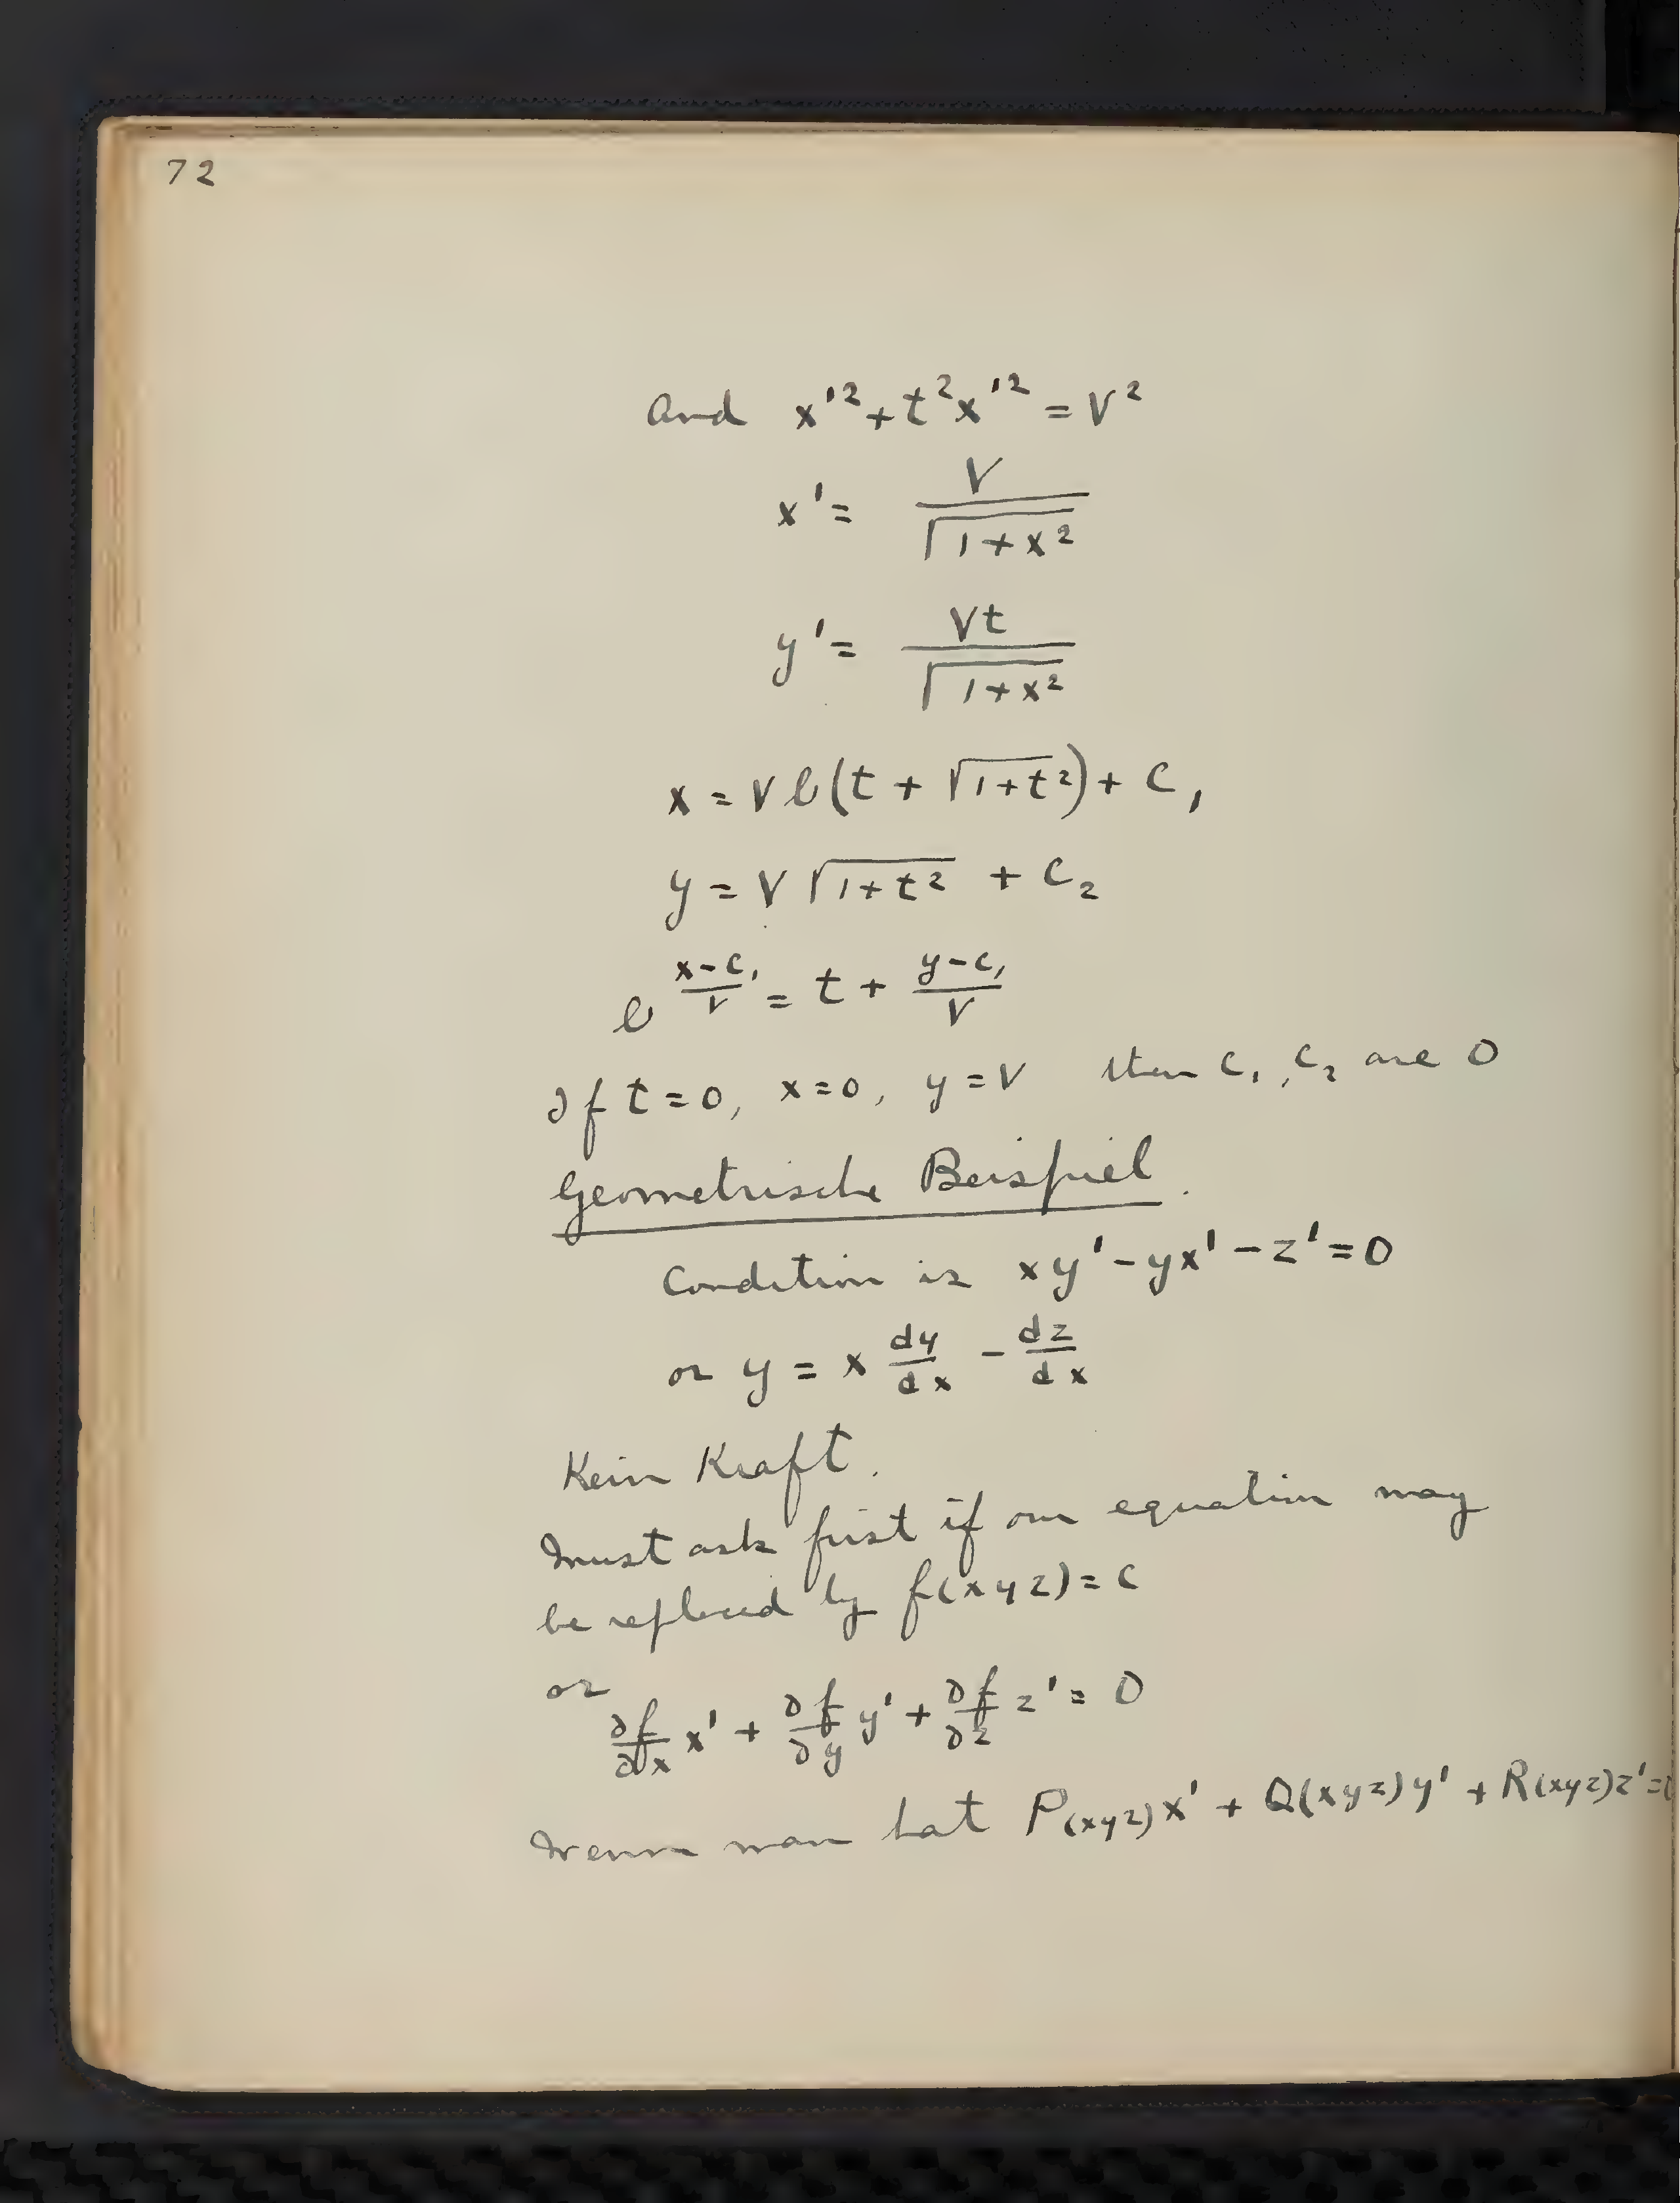 72
And x'² + t²x'² = V²
x' = V / √(1+x²)
y' = Vt / √(1+x²)
x = V l(t + √(1+t²)) + C₁
y = V √(1+t²) + C₂
e^((x-c₁)/V) = t + (y-c₁)/V
If t=0, x=0, y=V then C₁, C₂ are 0
Geometrische Beispiel.
Condition is xy' - yx' - z' = 0
or y = x dy/dx - dz/dx
Kein Kraft.
Must ask first if our equation may
be replaced by f(xyz) = C
or
∂f/∂x x' + ∂f/∂y y' + ∂f/∂z z' = 0
Wenn man hat P(xyz)x' + Q(xyz)y' + R(xyz)z'=0